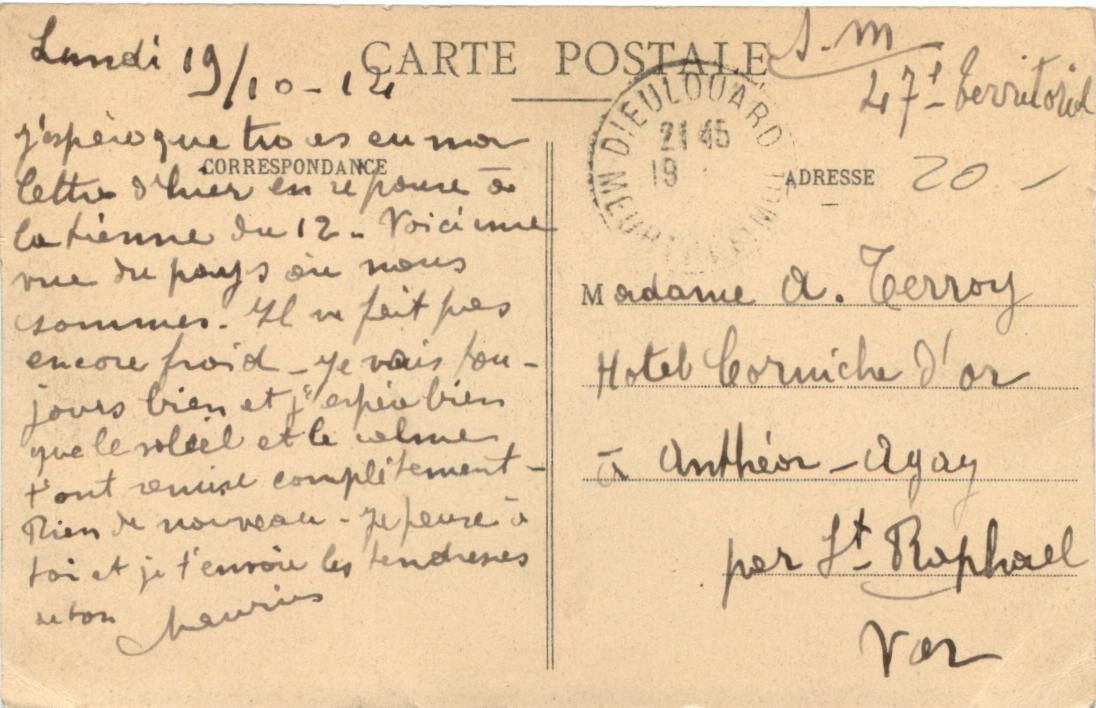 Lundi 19/10-14
CARTE POSTALE
S.M
47e territorial
CORRESPONDANCE
ADRESSE
20 -
DIEULOUARD
21 45
19
j'espère que tu as eu ma
lettre d'hier en réponse à
la tienne du 12 - Voici une
vue du pays où nous
sommes. Il ne fait pas
encore froid - Je vais tou-
jours bien et j'espère bien
que le soleil et le calme
t'ont remise complètement -
Rien de nouveau - Je pense à
toi et je t'envoie les tendresses
de ton
Maurice
Madame A. Terroy
Hotel Corniche d'or
à Anthéor - Agay
par St Raphael
Var